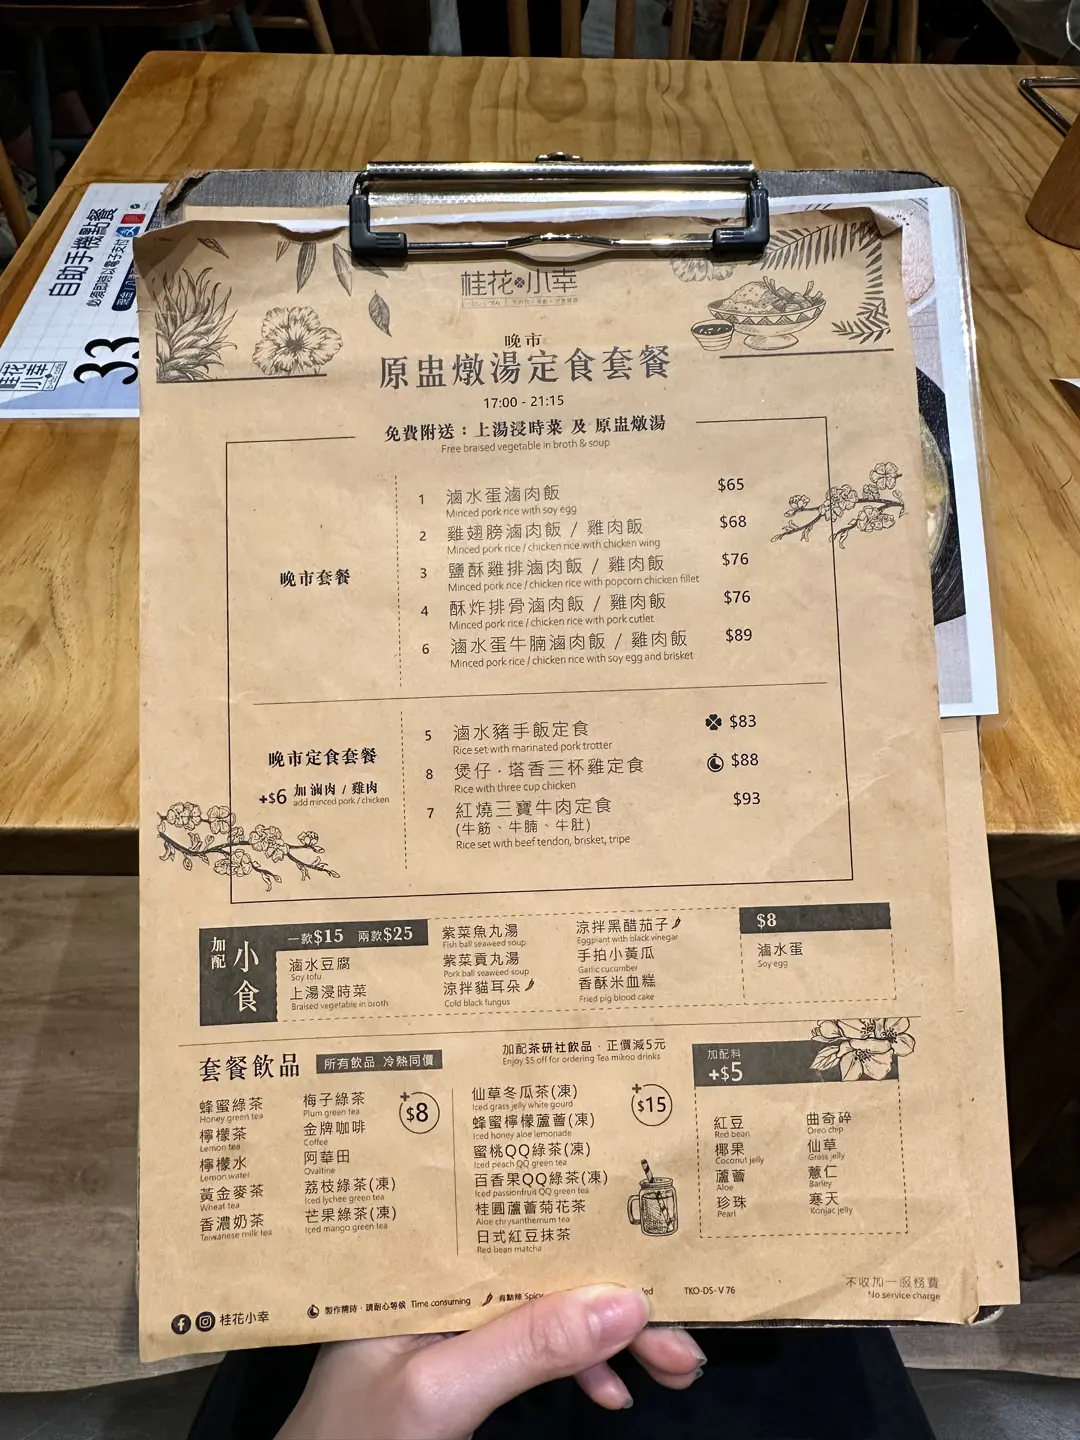 自助手機點餐
33
桂花小幸
桂花小幸
晚市
原盅燉湯定食套餐
17:00 - 21:15
免費附送：上湯浸時菜 及 原盅燉湯
Free braised vegetable in broth & soup
晚市套餐
1 滷水蛋滷肉飯 $65
Minced pork rice with soy egg
2 雞翅膀滷肉飯 / 雞肉飯 $68
Minced pork rice / chicken rice with chicken wing
3 鹽酥雞排滷肉飯 / 雞肉飯 $76
Minced pork rice / chicken rice with popcorn chicken fillet
4 酥炸排骨滷肉飯 / 雞肉飯 $76
Minced pork rice / chicken rice with pork cutlet
6 滷水蛋牛腩滷肉飯 / 雞肉飯 $89
Minced pork rice / chicken rice with soy egg and brisket
晚市定食套餐
+$6 加滷肉 / 雞肉
add minced pork / chicken
5 滷水豬手飯定食 $83
Rice set with marinated pork trotter
8 煲仔·塔香三杯雞定食 $88
Rice with three cup chicken
7 紅燒三寶牛肉定食 $93
(牛筋、牛腩、牛肚)
Rice set with beef tendon, brisket, tripe
加配小食
一款$15 兩款$25
滷水豆腐
Soy tofu
上湯浸時菜
Braised vegetable in broth
紫菜魚丸湯
Fish ball seaweed soup
紫菜貢丸湯
Pork ball seaweed soup
涼拌貓耳朵
Cold black fungus
涼拌黑醋茄子
Eggplant with black vinegar
手拍小黃瓜
Garlic cucumber
香酥米血糕
Fried pig blood cake
$8
滷水蛋
Soy egg
套餐飲品 所有飲品 冷熱同價
加配茶研社飲品·正價減5元
Enjoy $5 off for ordering Tea mikoo drinks
蜂蜜綠茶
Honey green tea
檸檬茶
Lemon tea
檸檬水
Lemon water
黃金麥茶
Wheat tea
香濃奶茶
Taiwanese milk tea
梅子綠茶
Plum green tea
金牌咖啡
Coffee
阿華田
Ovaltine
荔枝綠茶(凍)
Iced lychee green tea
芒果綠茶(凍)
Iced mango green tea
+$8
仙草冬瓜茶(凍)
Iced grass jelly white gourd
蜂蜜檸檬蘆薈(凍)
Iced honey aloe lemonade
蜜桃QQ綠茶(凍)
Iced peach QQ green tea
百香果QQ綠茶(凍)
Iced passionfruit QQ green tea
桂圓蘆薈菊花茶
Aloe chrysanthemum tea
日式紅豆抹茶
Red bean matcha
+$15
加配料
+$5
紅豆
Red bean
椰果
Coconut jelly
蘆薈
Aloe
珍珠
Pearl
曲奇碎
Oreo chip
仙草
Grass jelly
薏仁
Barley
寒天
Konjac jelly
桂花小幸
製作需時·請耐心等候 Time consuming
有點辣 Spicy
TKO-DS-V 76
不收加一服務費
No service charge